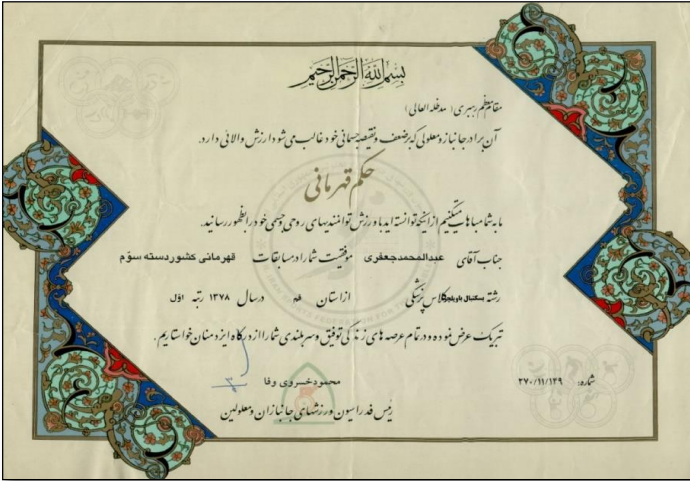 بسم الله الرحمن الرحیم
مقام معظم رهبری (مدظله العالی)
آن برادر جانباز و معلولی که بر ضعف و نقیصه جسمانی خود غالب می شود ارزش والائی دارد.
حکم قهرمانی
ما به شما مباهات میکنیم از اینکه توانسته اید با ورزش توانمندیهای روحی و جسمی خود را بظهور رسانید.
جناب آقای عبدالمحمدجعفری موفقیت شما را در مسابقات قهرمانی کشور دسته سوّم
رشته بسکتبال باویلچر کلاس پزشکی از استان قم در سال ۱۳۷۸ رتبه اوّل
تبریک عرض نموده و در تمام عرصه های زندگی توفیق و سربلندی شما را از درگاه ایزد منان خواستاریم.
محمود خسروی وفا
شماره: ۲۷۰/۱۱/۱۲۹
رئیس فدراسیون ورزشهای جانبازان و معلولین